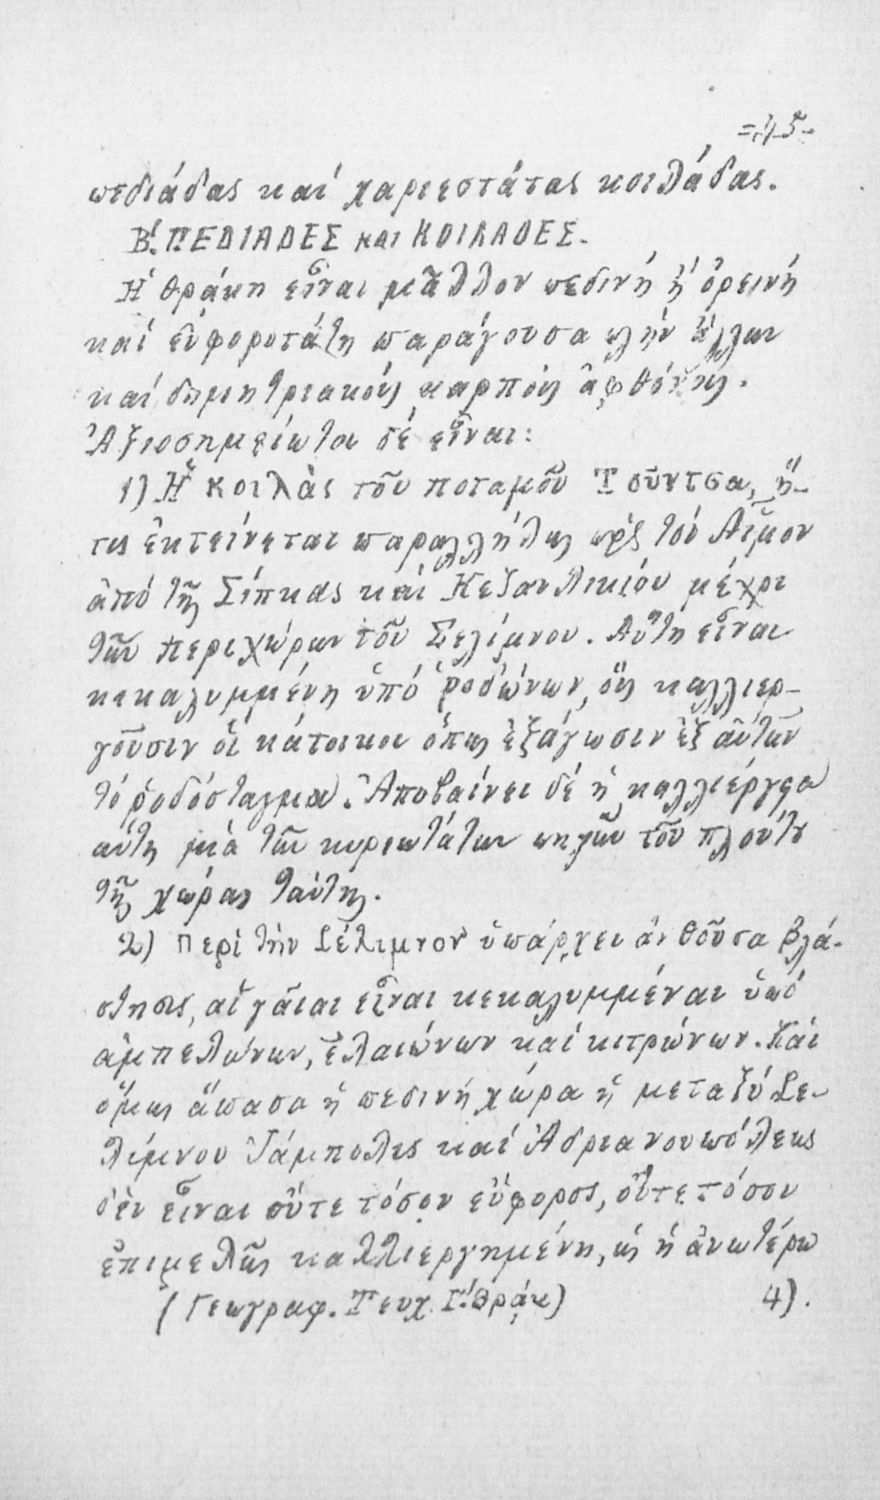 πεδιάδας καί χαριεστάτας κοιλάδας.
Β΄. ΠΕΔΙΑΔΕΣ και ΚΟΙΛΑΔΕΣ.
Ἡ Θράκη εἶναι μᾶλλον πεδινή ἤ ὀρεινή
καί εὐφοροτάτη παράγουσα πλήν ἄλλων
καί δημητριακούς καρπούς ἀφθόνως.
Ἀξιοσημείωτοι δέ εἶναι:
1) Ἡ κοιλὰς τοῦ ποταμοῦ Τούντσα, ἥ-
τις ἐκτείνεται παραλλήλως πρός τόν Αἷμον
ἀπό τῆς Σίπκας καί Κεζανλικίου μέχρι
τῶν περιχώρων τοῦ Σελίμνου. Αὕτη εἶναι
κεκαλυμμένη ὑπό ῥοδώνων, οὕς καλλιερ-
γοῦσιν οἱ κάτοικοι ὅπως ἐξάγωσιν ἐξ αὐτῶν
τό ῥοδόσταγμα. Ἀποβαίνει δέ ἡ καλλιέργεια
αὕτη μία τῶν κυριωτάτων πηγῶν τοῦ πλούτου
τῆς χώρας ταύτης.
2) Περί τήν Σέλιμνον ὑπάρχει ἀνθοῦσα βλά-
στησις, αἱ γαῖαι εἶναι κεκαλυμμέναι ὑπό
ἀμπελώνων, ἐλαιώνων καί κιτρώνων. Καί
ὅμως ἅπασα ἡ πεδινή χώρα ἡ μεταξύ Σε-
λίμνου Ἰάμπολις καί Ἀδριανουπόλεως
δέν εἶναι οὔτε τόσον εὔφορος, οὔτε τόσον
ἐπιμελῶς καλλιεργημένη, ὡς ἡ ἀνωτέρω
(Γεωγραφ. Τευχ. Γ΄. Θράκ) 4).